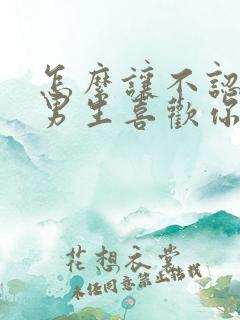 怎麼讓不認
男生喜歡你
花想衣裳
未经同意禁止转载